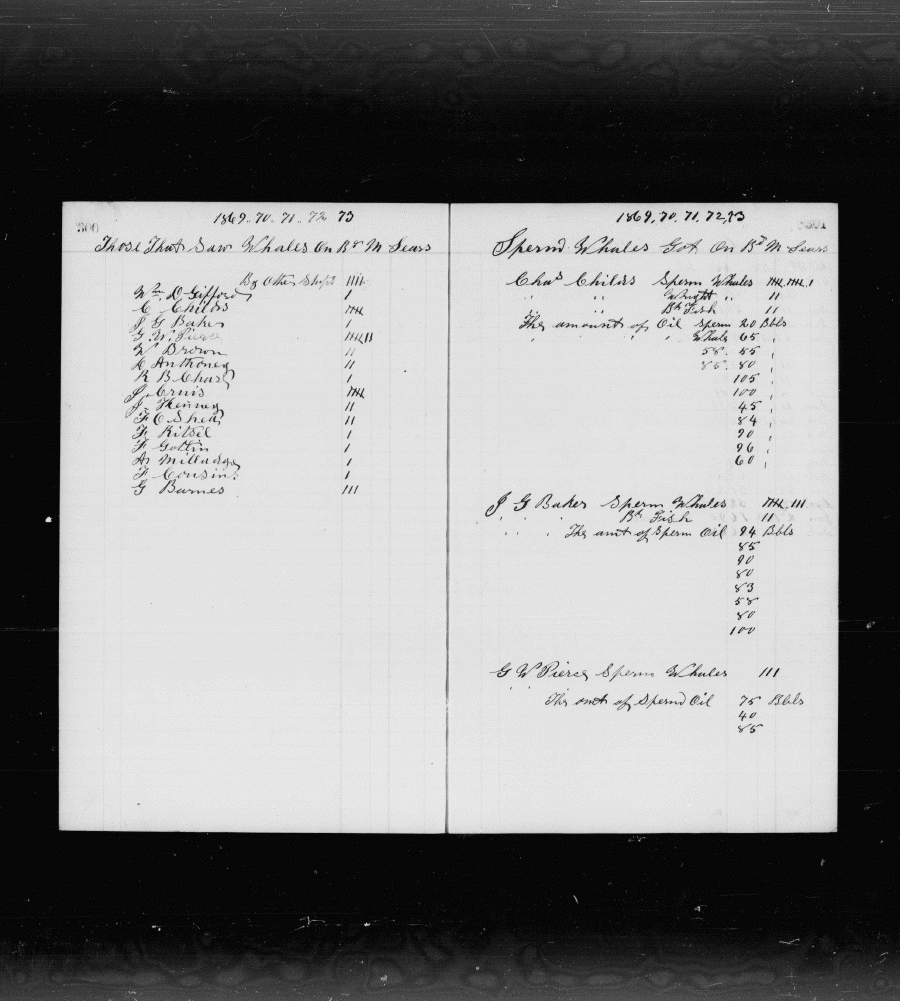 1869..70..71..72 73
Those That Saw Whales On Bd M Sears
By Other Ships IIIII
Wm D Gifford I
C Childs IIII
J G Baker I
G W. Pierce IIII II
W Brown II
A Anthoney II
R B Chas I
J. Ennis IIII
J Kenney II
F C Shea II
F Kitsel I
F Gottin I
A Milladge I
F Cousin. I
G Barnes III
1869, 70, 71, 72, 73
Sperm Whales Got On Bd M Sears
Chas Childs Sperm Whales IIII, IIII, I
" " Wright " II
" " Bk Fish II
The amount of Oil Sperm 20 Bbls
" " " " Whale 65 "
58. 85 "
85. 80 "
105 "
100 "
45 "
84 "
90 "
96 "
60 "
J G Baker Sperm Whales IIII, III
" " Bk Fish II
" " " The amt of Sperm Oil 94 Bbls
85
90
80
83
58
80
100
G W Pierce Sperm Whales III
" "
The amt of Sperm Oil 75 Bbls
40
85